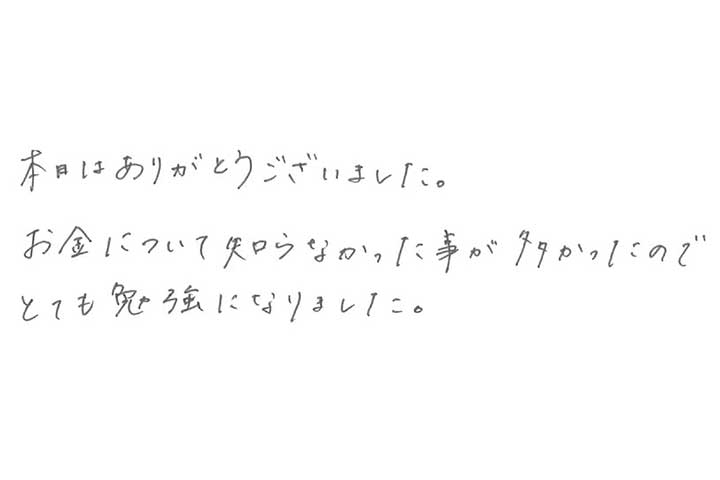 本日はありがとうございました。
お金について知らなかった事が多かったので
とても勉強になりました。